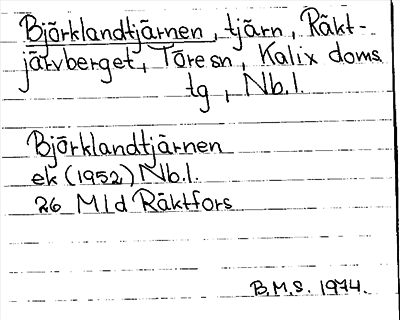 Björklandtjärnen, tjärn, Räkt-
järvberget, Töre sn, Kalix doms
tg, Nb.l.
Björklandtjärnen
ek (1952) Nb.l.
26 Mld Räktfors
B.M.S. 1974.